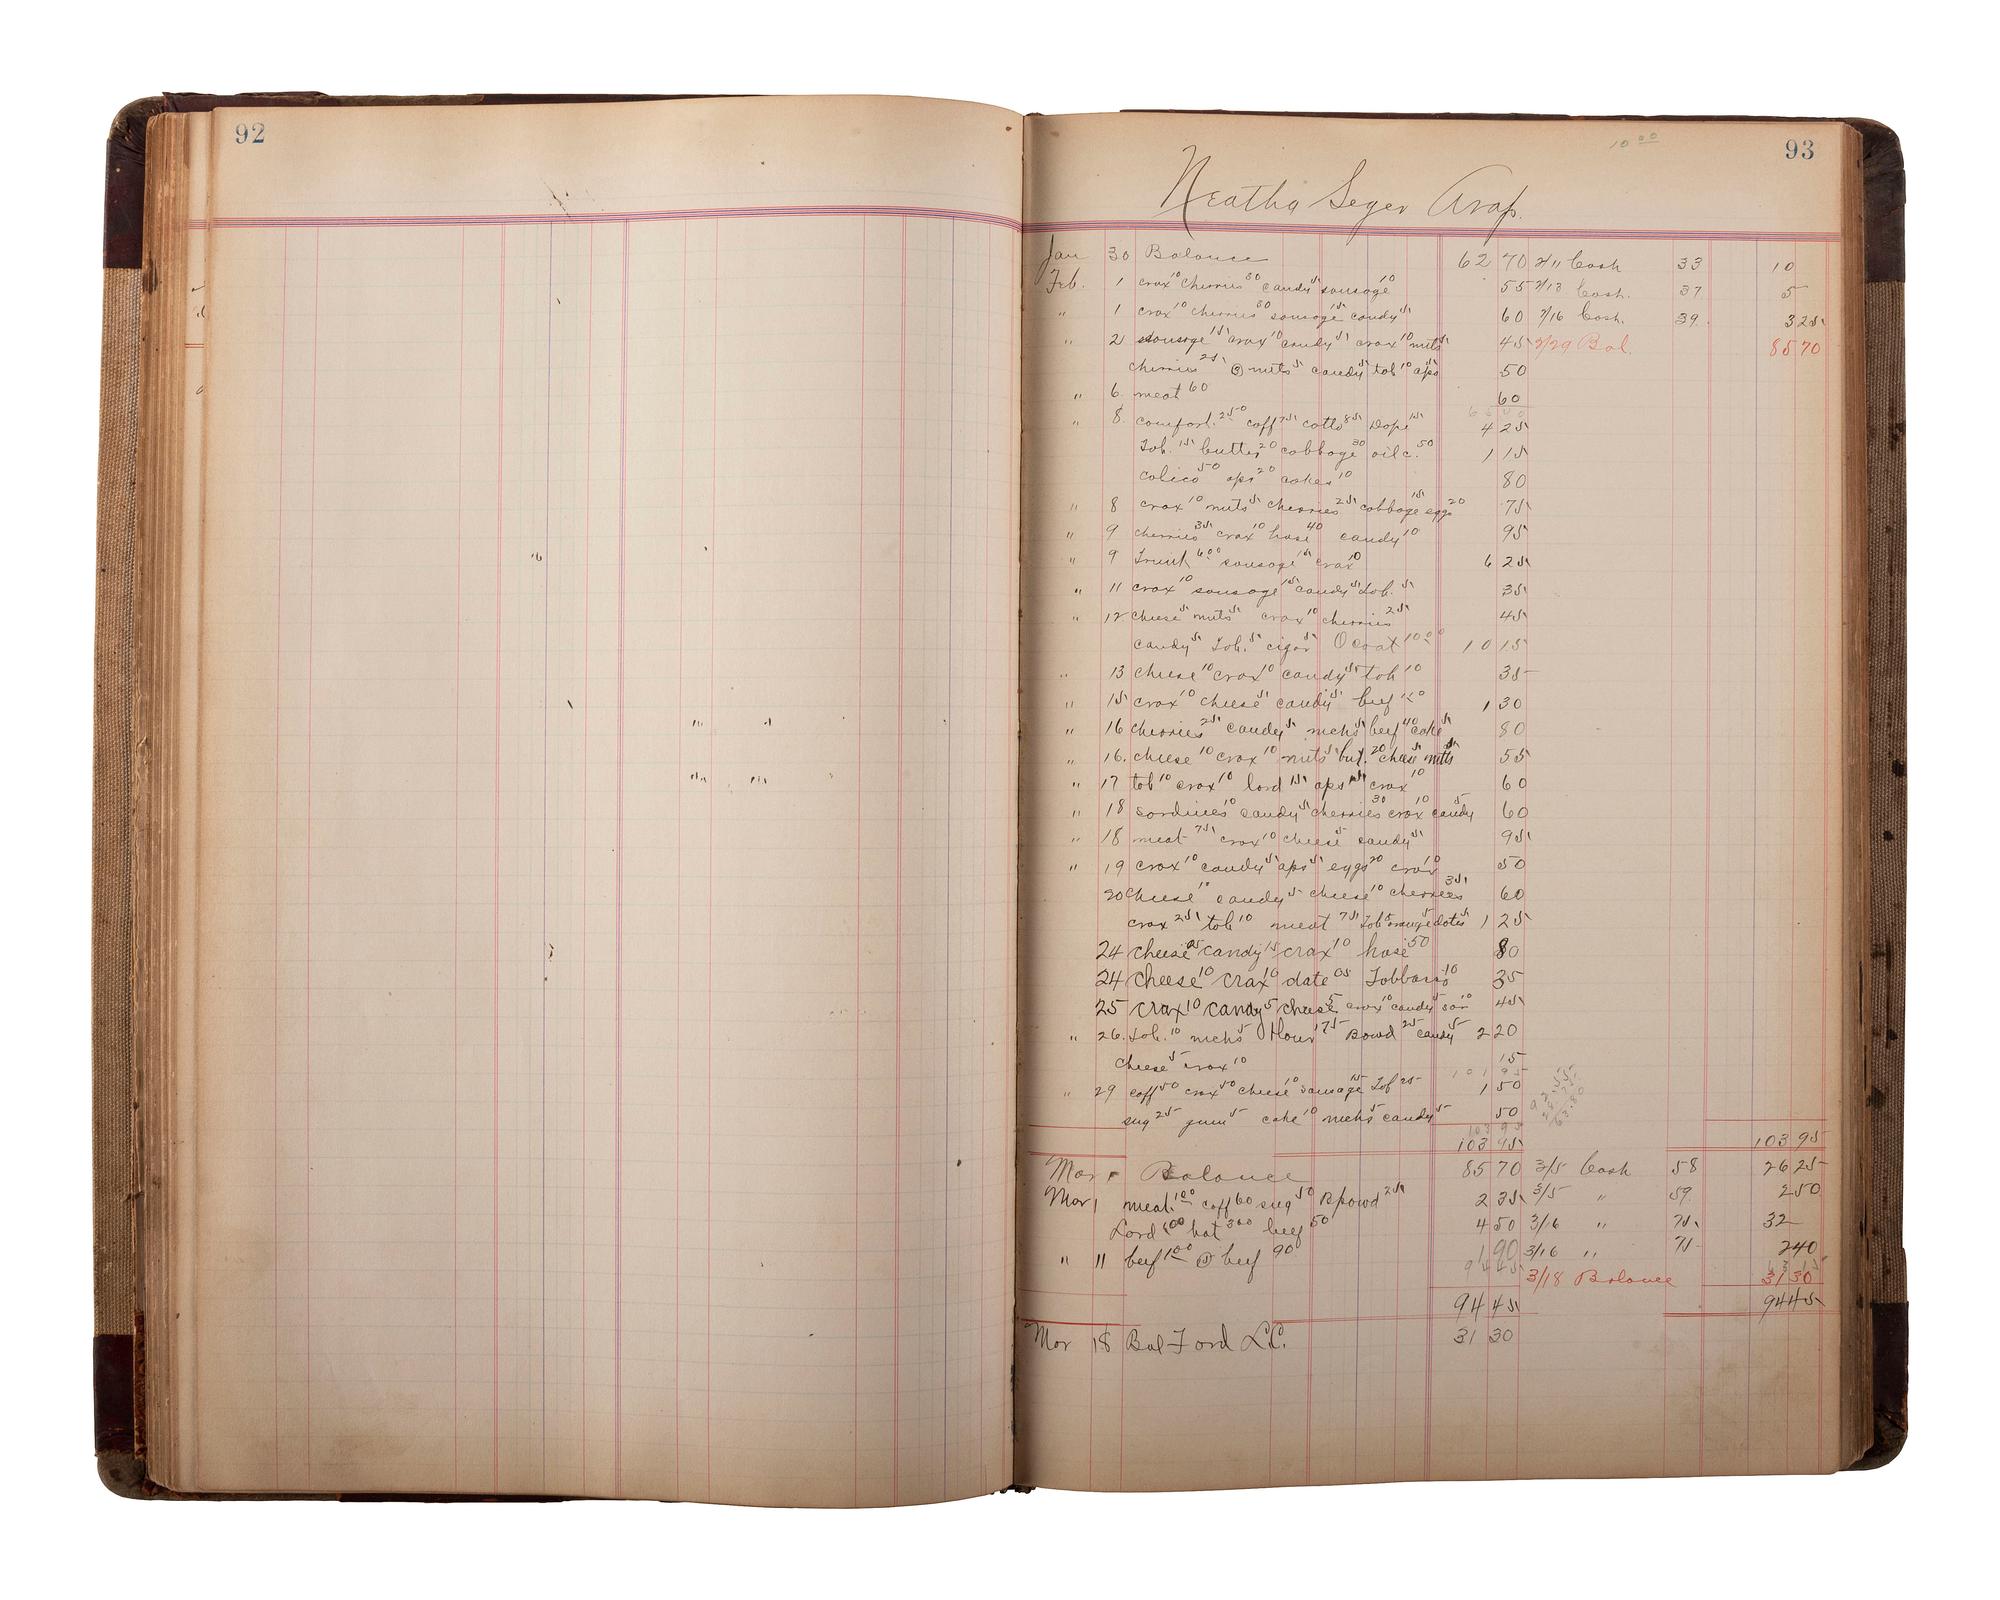 92
93
10 00
Neatha Seger Arap.
Jan 30 Balance 62 70 2/11 Cash 33 10
Feb. 1 crax 10 cherries 30 candy 5 sausage 10 55 2/13 Cash. 37 5
" 1 crax 10 cherries 30 sausage 15 candy 5 60 2/16 Cash. 39 3 25
" 2 sausage 15 crax 10 candy 5 crax 10 nuts 5 45 2/29 Bal. 85 70
cherries 25 @ nuts 5 candy 5 tob 10 aps 5 50
" 6. meat 60 60
" 8. comfort. 2 50 coff 75 cotts 85 Dope 15 4 25
Tob. 15 butter 20 cabbage 30 oil c. 50 1 15
calico 50 aps 20 cakes 10 80
" 8 crax 10 nuts 5 cherries 25 cabbage 15 eggs 20 75
" 9 cherries 35 crax 10 hose 40 candy 10 95
" 9 Trunk 6 00 sausage 15 crax 10 6 25
" 11 crax 10 sausage 15 candy 5 Tob. 5 35
" 12 cheese 5 nuts 5 crax 10 cherries 25 45
candy 5 Tob. 5 cigar 5 O coat 10 00 10 15
" 13 cheese 10 crax 10 candy 5 tob 10 35
" 15 crax 10 cheese 5 candy 5 beef 1 30
" 16 cherries 25 candy 5 nicks 5 beef 40 cake 5 80
" 16. cheese 10 crax 10 nuts 5 but. 20 cheese 5 nuts 5 55
" 17 tob 10 crax 10 lard 15 aps crax 10 60
" 18 sardines 10 candy 5 cherries 30 crax 10 candy 5 60
" 18 meat 75 crax 10 cheese 5 candy 5 95
" 19 crax 10 candy 5 aps 5 eggs 20 crax 10 50
20 cheese 10 candy 5 cheese 10 cherries 35 60
crax 25 tob 10 meat 75 Tob 5 orange 5 dates 5 1 25
24 cheese 05 candy 15 crax 10 hose 50 80
24 cheese 10 crax 10 date 05 Tobbacco 10 35
25 crax 10 candy 5 cheese 5 crax 10 candy 5 sar 10 45
" 26. Tob. 10 nicks 5 Flour 1 75 B powd 25 candy 5 2 20
cheese 5 crax 10 15
101 95
" 29 coff 50 crax 50 cheese 10 sausage 15 Tob 25 1 50
sug 25 gum 5 cake 10 nicks 5 candy 5 50
103 95
103 95 103 95
Mar 1 Balance 85 70 3/5 Cash 58 26 25
Mar 1 meat. 1 00 coff 60 sug 50 B powd 25 2 35 3/5 " 59. 2 50
Lard 1 00 hat 3 00 beef 50 4 50 3/16 " 71. 32
" 11 beef 1 00 @ beef 90 1 90 3/16 " 71 2 40
94 45 3/18 Balance 31 30
94 45 94 45
Mar 18 Bal Ford L.C. 31 30